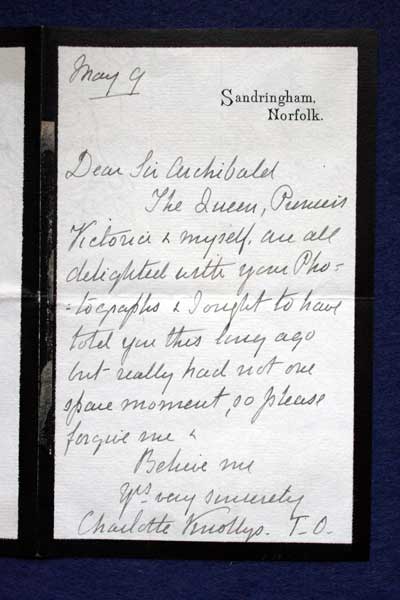 May 9
Sandringham,
Norfolk.
Dear Sir Archibald
The Queen, Princess
Victoria & myself, are all
delighted with your Pho-
-tographs & I ought to have
told you this long ago
but really had not one
spare moment, so please
forgive me &
Believe me
Yrs very sincerely
Charlotte Knollys. T-O-